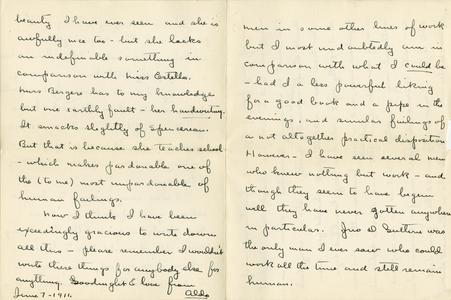 beauty I have ever seen and she is
awfully nice too - but she lacks
an indefinable something in
comparison with Miss Estella.
Miss Bergere has to my knowledge
but one earthly fault - her handwriting.
It smacks slightly of Spencerean.
But that is because she teaches school
- which makes pardonable one of
the (to me) most unpardonable of
human failings.
Now I think I have been
exceedingly gracious to write down
all this - please remember I wouldn't
write these things for anybody else for
anything. Goodnight & love from
June 7 - 1911. Aldo
men in some other lines of work
but I most undoubtedly am in
comparison with what I could be
- had I a less powerful liking
for a good book and a pipe in the
evenings, and similar failings of
a not altogether practical disposition
However - I have seen several men
who knew nothing but work - and
though they seem to have begun
well they have never gotten anywhere
in particular. Jno D. Guthrie was
the only man I ever saw who could
work all the time and still remain
human.